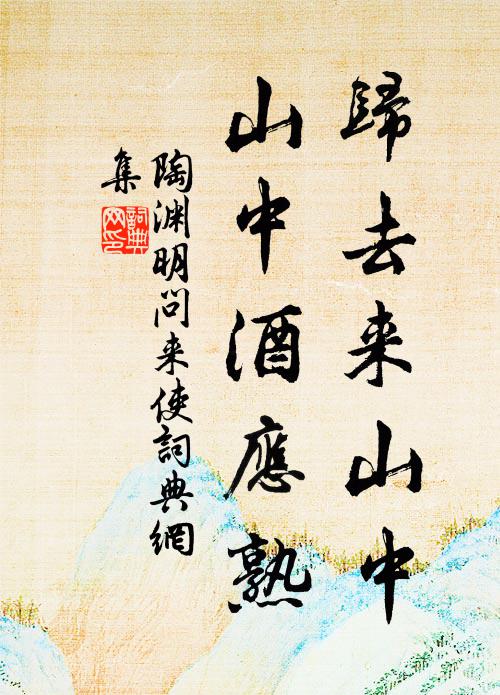 歸去来山中
山中酒應熟
陶渊明問来使詞典網
集
詞典网印